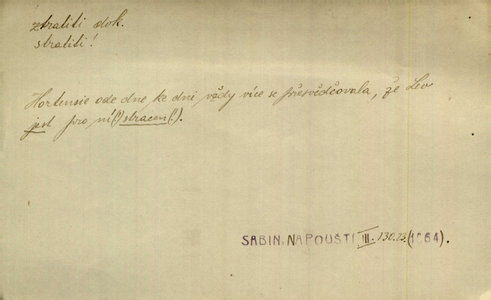 ztratiti dok.
stratiti!
Hortensie ode dne ke dni vždy více se přesvědčovala, že Leo
jest pro ni(!) stracen(!).
SABINA, NA POUŠTI III. 130.23.(1864).